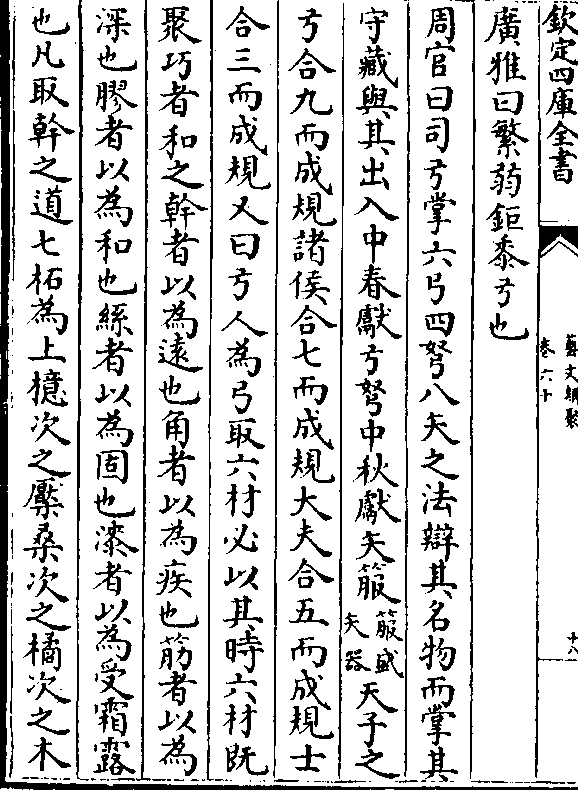 欽定四庫全書
藝文類聚
卷六十
十八
廣雅曰繁弱鉅黍弓也
周官曰司弓掌六弓四弩八矢之法辯其名物而掌其
守藏與其出入中春獻弓弩中秋獻矢箙箙盛矢器天子之
弓合九而成規諸侯合七而成規大夫合五而成規士
合三而成規又曰弓人為弓取六材必以其時六材既
聚巧者和之幹者以為遠也角者以為疾也筋者以為
深也膠者以為和也絲者以為固也漆者以為受霜露
也凡取幹之道七柘為上檍次之檿桑次之橘次之木